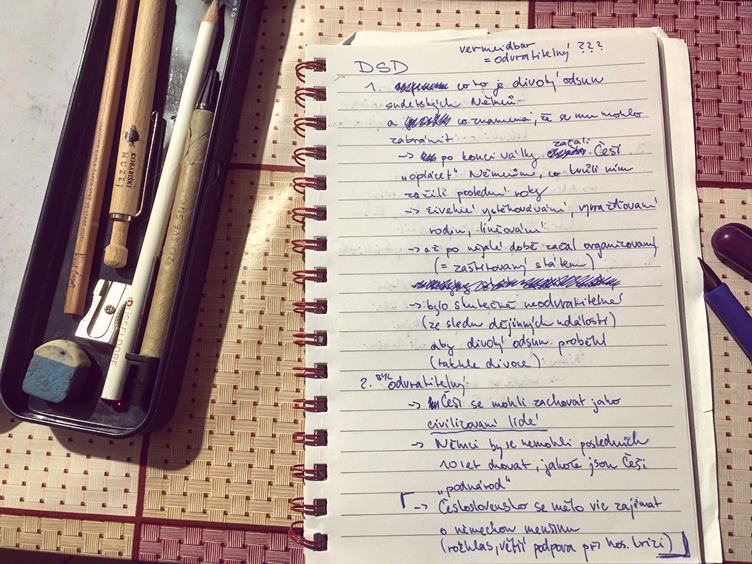 vermeidbar ???
= odvratitelný
DSD
1. co to je divoký odsun
sudetských Němců
a co znamená, že se mu mohlo
zabránit
začali
→ po konci války Češi
"oplácet" Němcům, co kvůli nim
zažili poslední roky
→ živelné vystěhovávání, vyvražďování
rodin, lynčování
→ až po nějaké době začal organizovaný
(= zaštiťovaný státem)
→ bylo skutečně neodvratitelné
(ze sledu dějinných událostí)
aby divoký odsun proběhl
(takhle divoce)
2. byl odvratitelný
→ Češi se mohli zachovat jako
civilizovaní lidé
→ Němci by se nemohli posledních
10 let chovat, jakože jsou Češi
"podnárod"
→ Československo se mělo víc zajímat
o německou menšinu
(rozhlas, větší podpora při hos. krizi)
KOBARIŠKI
MUZEJ